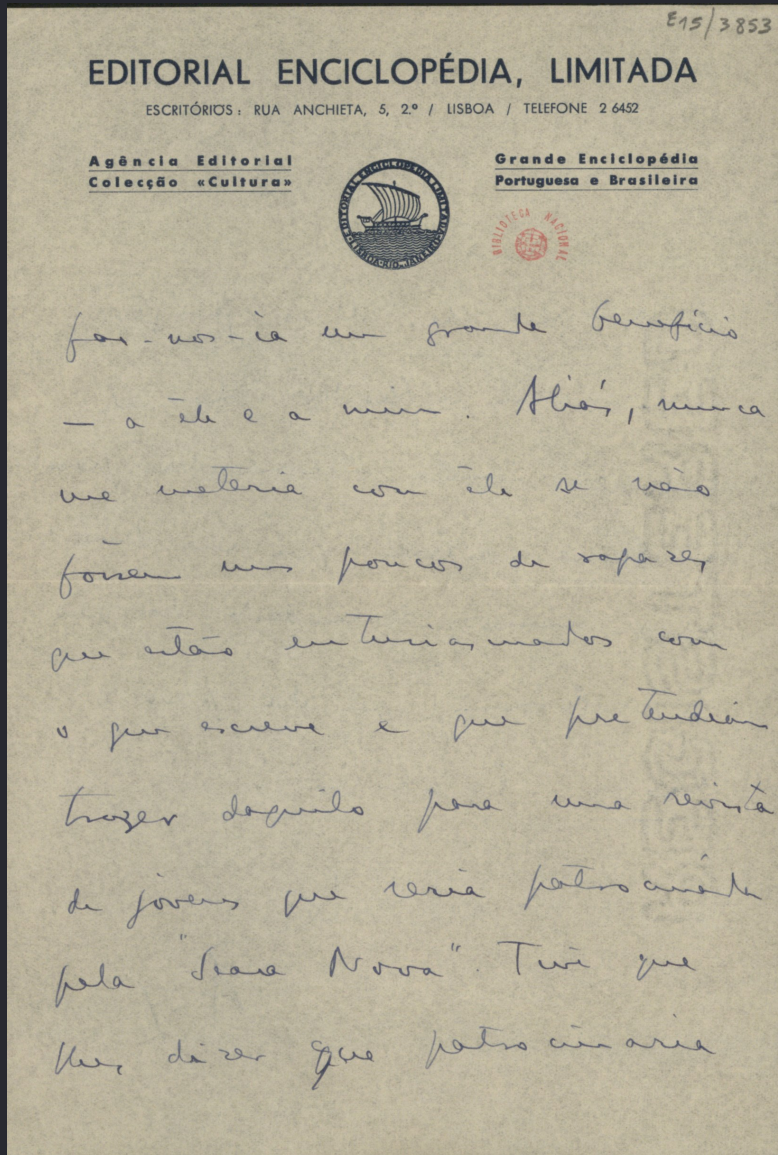 E15/3853
EDITORIAL ENCICLOPÉDIA, LIMITADA
ESCRITÓRIOS: RUA ANCHIETA, 5, 2.º / LISBOA / TELEFONE 2 6452
Agência Editorial
Colecção «Cultura»
Grande Enciclopédia
Portuguesa e Brasileira
EDITORIAL ENCICLOPÉDIA LIMITADA
LISBOA·RIO DE JANEIRO
BIBLIOTECA NACIONAL
far-nos-ia um grande benefício
— a êle e a mim. Aliás, nunca
me meteria com êle se não
fôssem uns poucos de rapazes
que estão entusiasmados com
o que escreve e que pretendiam
trazer daquilo para uma revista
de jovens que seria patrocinada
pela "Seara Nova". Tive que
lhes dizer que patrocinaria